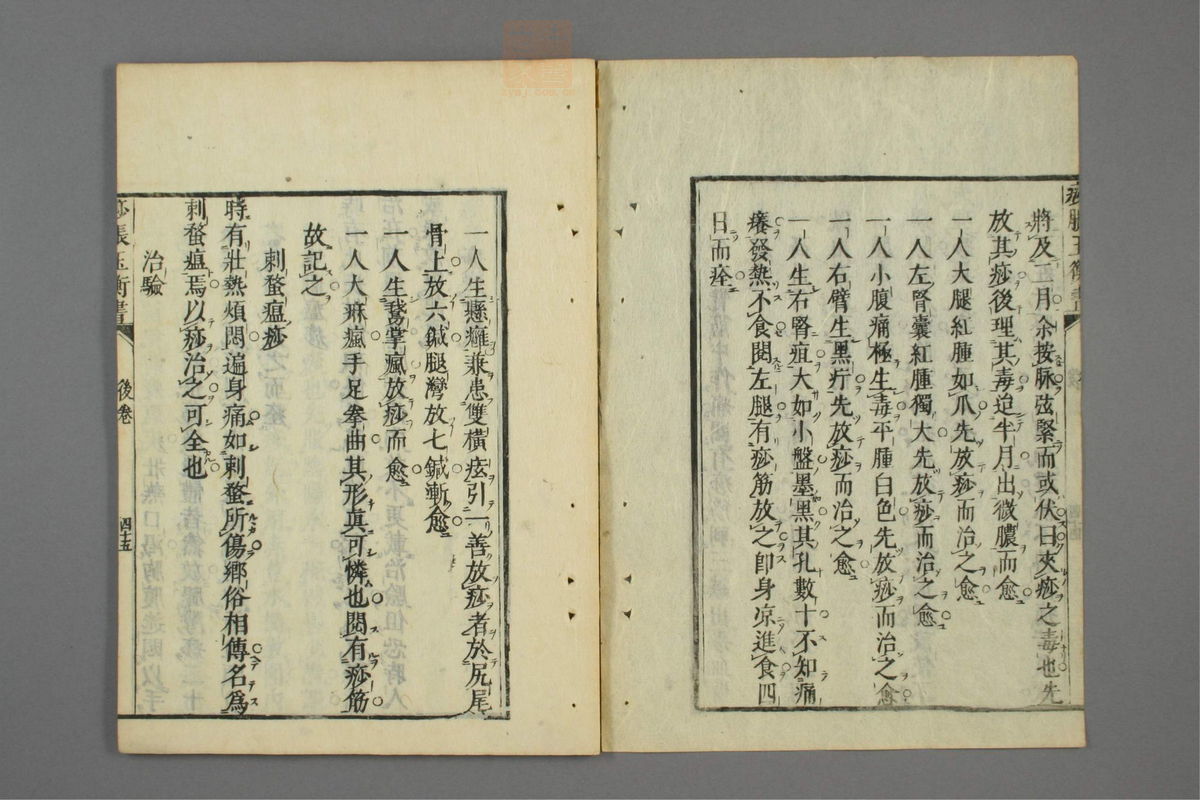 痧脹玉衡書
將及一月余按脉弦緊而或伏曰夾痧之毒也先
放其痧後理其毒迨半月出微膿而愈
一人大腿紅腫如爪先放痧而治之愈
一人左腎囊紅腫獨大先放痧而治之愈
一人小腹痛極生毒平腫白色先放痧而治之愈
一人右臂生黑疔先放痧而治之愈
一人生右腎疽大如小盤墨黑其孔數十不知痛
癢發熱不食閱左腿有痧筋放之卽身凉進食四
日而痊
一人生懸癰兼患雙橫痃引一善放痧者於尻尾
骨上放六鍼腿灣放七鍼漸愈
一人生鵝掌瘋放痧而愈
一人大痲瘋手足拳曲其形真可憐也閱有痧筋
故記之
刺蝥瘟痧
時有壯熱煩悶遍身痛如刺蝥所傷鄉俗相傳名爲
刺蝥瘟焉以痧治之可全也
治驗
痧脹玉衡書 後卷 四十五